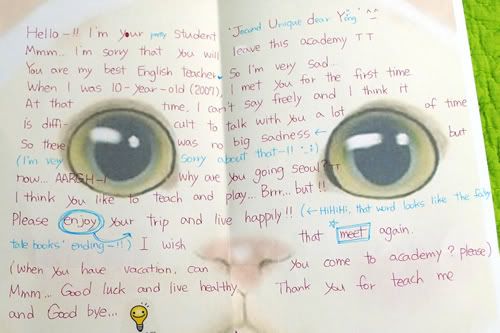 Hello-!! I'm your pretty student 'Jocund Unique dear Ying' ^^
Mmm.. I'm sorry that you will leave this academy ㅜㅜ
You are my best English teacher. So I'm very sad...
When I was 10-year-old (2007), I met you for the first time
At that time, I can't say freely and I think it
is diffi- cult to talk with you a lot of time
So there was no big sadness ← but
(I'm very sorry about that-!! :;)
now... AARGH-! Why are you going Seoul? ㅠㅠ
I think you like to teach and play... Brrr... but!!
Please enjoy your trip and live happily!! (←HiHiHi, that word looks like the fairy
tale books' ending-!!) I wish that meet again.
(When you have vacation, can you come to academy? please)
Mmm... Good luck and live healthy. Thank you for teach me
and Good bye...